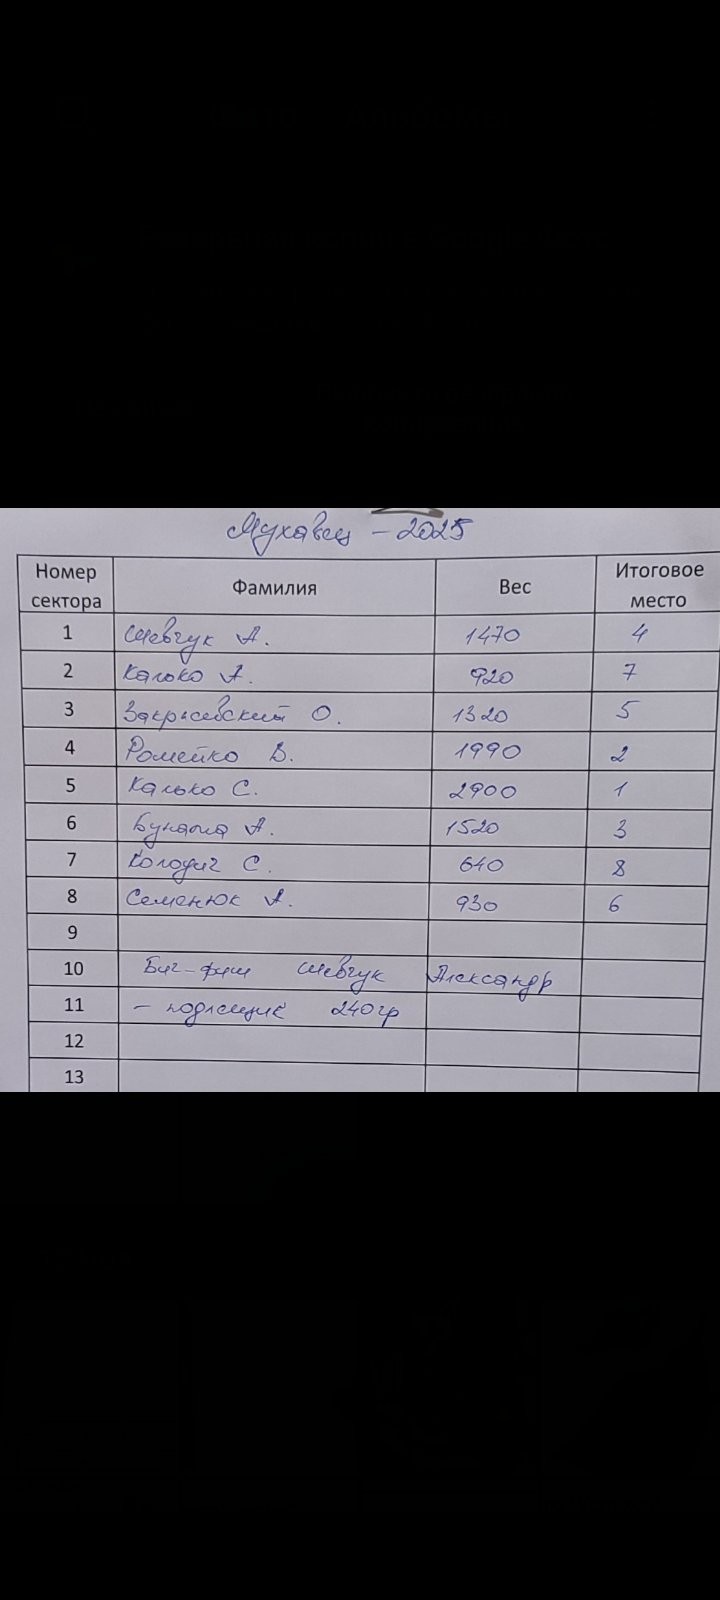 Мухавец - 2025
Номер сектора Фамилия Вес Итоговое место
1 Шевчук А. 1470 4
2 Калько А. 920 7
3 Закрысевский О. 1320 5
4 Ромейко В. 1990 2
5 Калько С. 2900 1
6 А. 1520 3
7 Колодич С. 640 8
8 Семенюк А. 930 6
9
10 Биг-фиш Шевчук Александр
11 - подлещик 240гр
12
13